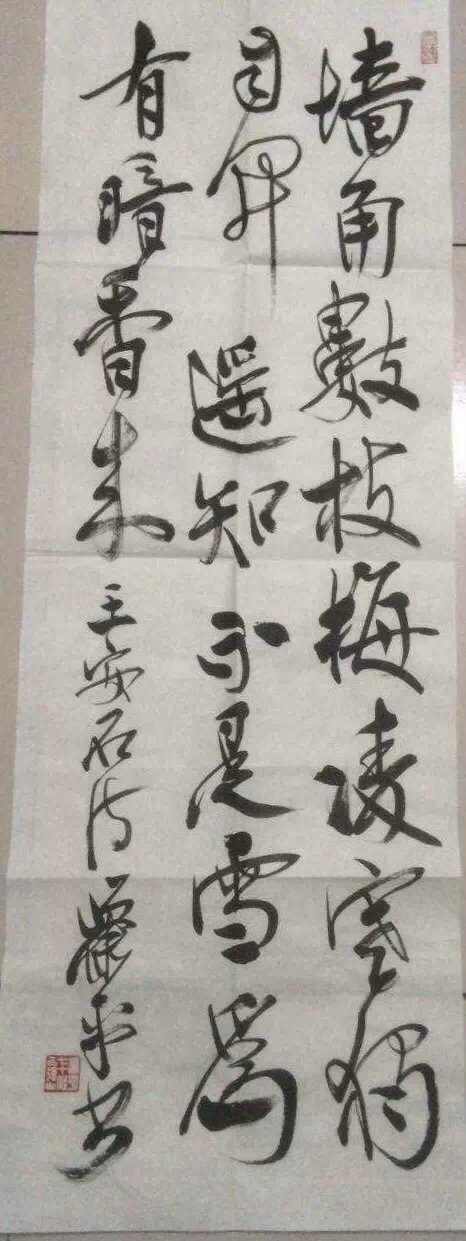 墙角數枝梅凌寒独
自开遥知不是雪為
有暗香来王安石诗平书